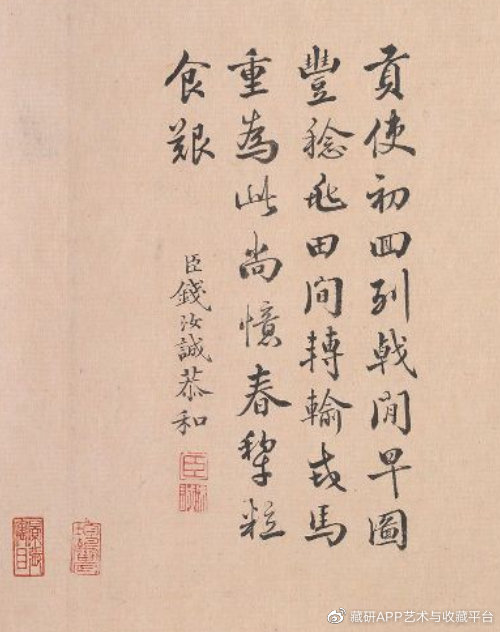 貢使初囬列戟閒早圖
豐稔屯田間轉輸戎馬
重為此尚憶春犁粒
食艱
臣錢汝誠恭和
藏研APP艺术与收藏平台